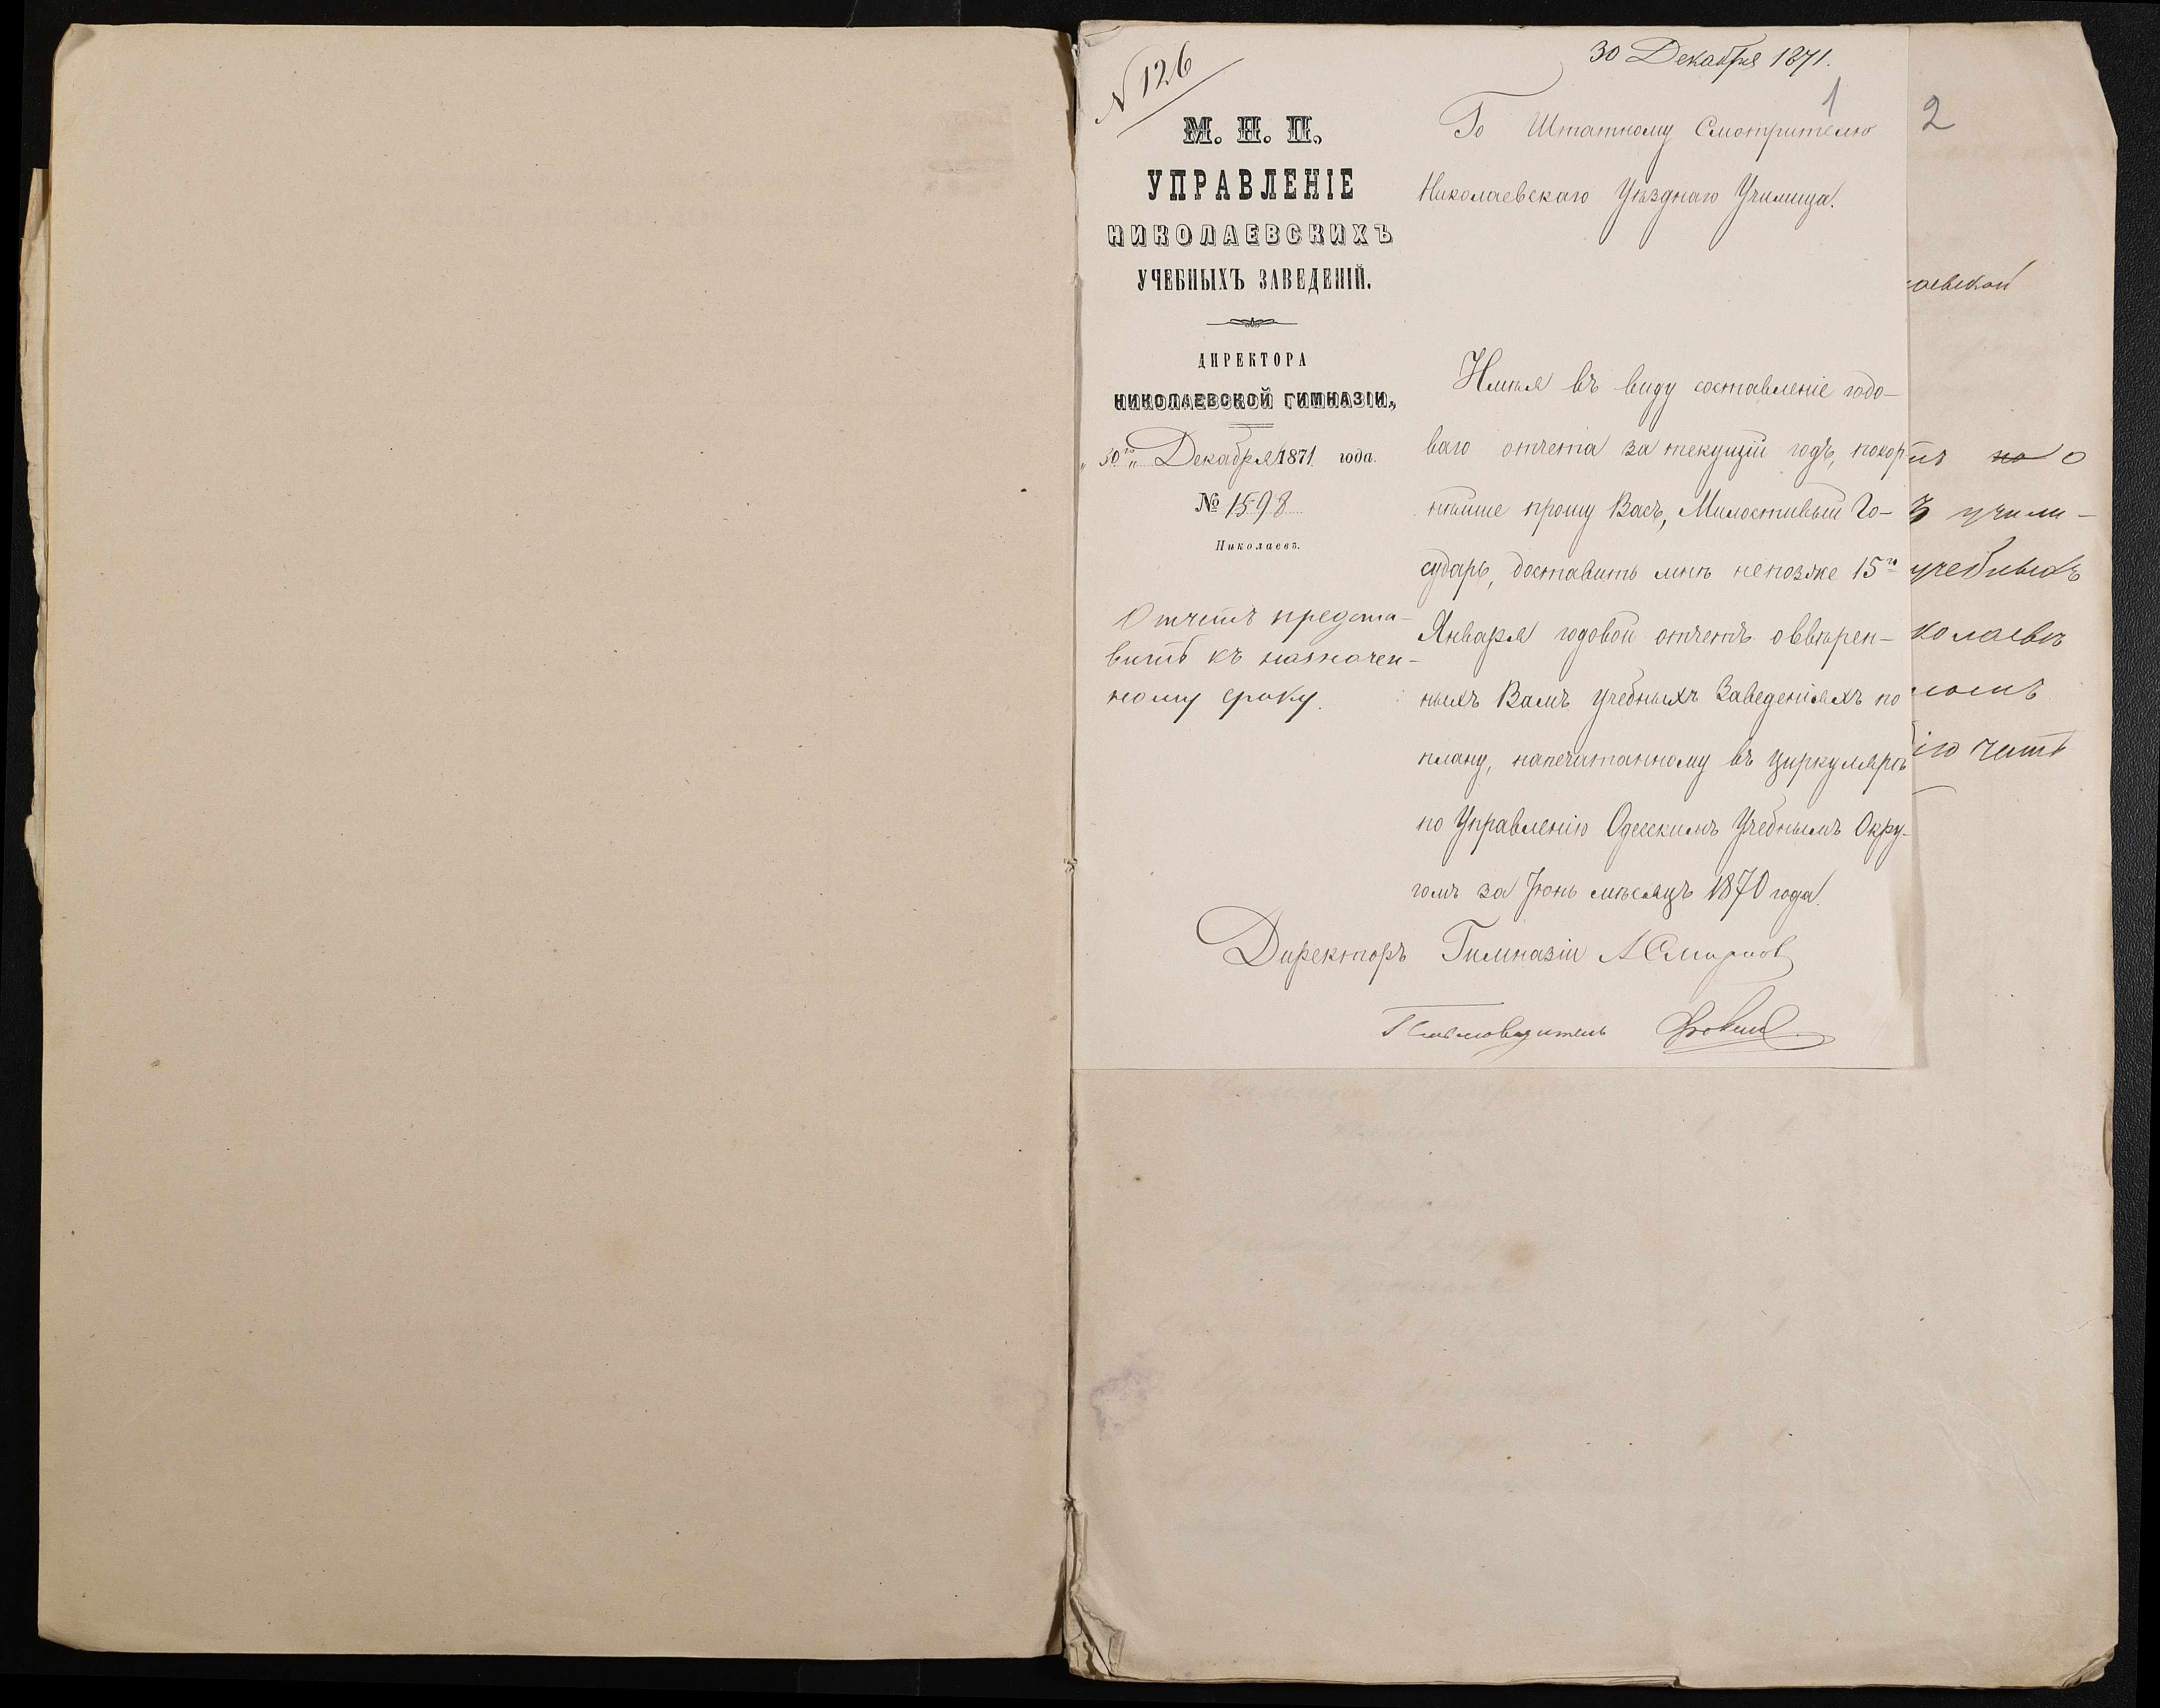 N 126
30 Декабря 1871.
1
2
М. Н. П.
УПРАВЛЕНІЕ
НИКОЛАЕВСКИХЪ
УЧЕБНЫХЪ ЗАВЕДЕНІЙ.
ДИРЕКТОРА
НИКОЛАЕВСКОЙ ГИМНАЗІИ.
„30го„ Декабря 1871 года.
№ 1598
Николаевъ.
Отчетъ предста-
вить къ назначен-
ному сроку.
Го Штатному Смотрителю
Николаевскаго Уѣзднаго Училища.
Имѣя въ виду составленіе годо-
ваго отчета за текущій годъ, покор-
нѣйше прошу Васъ, Милостивый Го-
сударь, доставить мнѣ непозже 15го
Января годовой отчетъ о ввѣрен-
ныхъ Вамъ учебныхъ Заведеніяхъ по
плану, напечатанному въ циркулярѣ
по Управленію Одесскимъ Учебнымъ Окру-
гомъ за Іюнь мѣсяцъ 1870 года.
Директоръ Гимназіи А Смирнов
Письмоводитель
аевской
по о
ъ учили-
учебныхъ
колаевъ